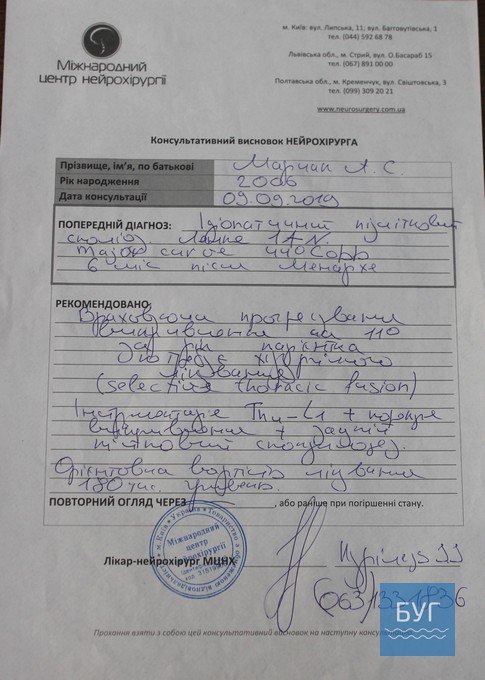 Міжнародний
центр нейрохірургії
м. Київ: вул. Липська, 11; вул. Баговутівська, 1
тел. (044) 592 68 78
Львівська обл., м. Стрий, вул.О.Басараб 15
тел. (067) 891 00 00
Полтавська обл., м. Кременчук, вул. Свіштовська, 3
тел. (099) 309 20 21
www.neurosurgery.com.ua
Консультативний висновок НЕЙРОХІРУРГА
Прізвище, ім'я, по батькові Марчак А. С.
Рік народження 2006
Дата консультації 09.09.2019
ПОПЕРЕДНІЙ ДІАГНОЗ: Ідіопатичний підлітковий
сколіоз Ленке 1AN
major curve 44° Cobb
6 міс після менархе
РЕКОМЕНДОВАНО
Враховуючи прогресування
викривлення на 11°
за рік пацієнтка
потребує хірургічного
лікування
(selective thoracic fusion)
Інструментація - L1 + корекція
викривлення + задній
спондилодез.
Орієнтовна вартість лікування
180 тис. гривень.
ПОВТОРНИЙ ОГЛЯД ЧЕРЕЗ , або раніше при погіршенні стану.
Міжнародний
центр
нейрохірургії
Лікар-нейрохірург МЦНХ
(063)1331836
БУГ
Прохання взяти з собою цей консультативний висновок на наступну